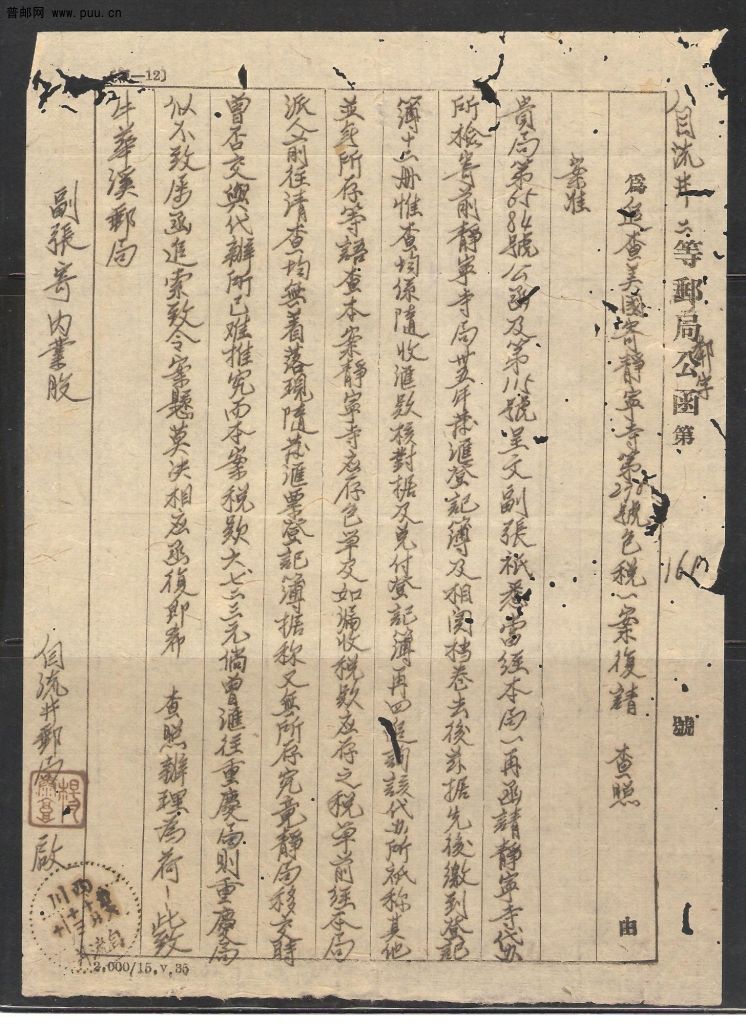 普邮网 www.puu.cn
—12)
自流井二等郵局公函第 郵字 號
為追查美國寄靜寧寺第278號包稅一案復請 查照 由
案准
貴局第6584號公函及第115號呈文副張祇悉當經本局一再函請靜寧寺代办
所檢寄前靜寧寺局卅五年茲匯登記簿及相関档卷去後茲据先後繳到登記
簿十六册惟查均係隨收滙欵核對据及兑付登記簿再四追詢該代办所祇称其他
並無所存等語查本案靜寧寺应存包单及如漏收税欵应存之税单前經本局
派人前往清查均無着落現隨茲滙票登記簿据称又無所存究竟靜局移交時
曾否交與代辦所已难推究而本案稅欵六七二三元倘曾滙往重慶局則重慶局
似不致屡函追索致令案懸莫决相应函復即希 查照辦理為荷！此致
牛華溪郵局
副張寄内業股
自流井郵局 啟
2,000/15.v.35